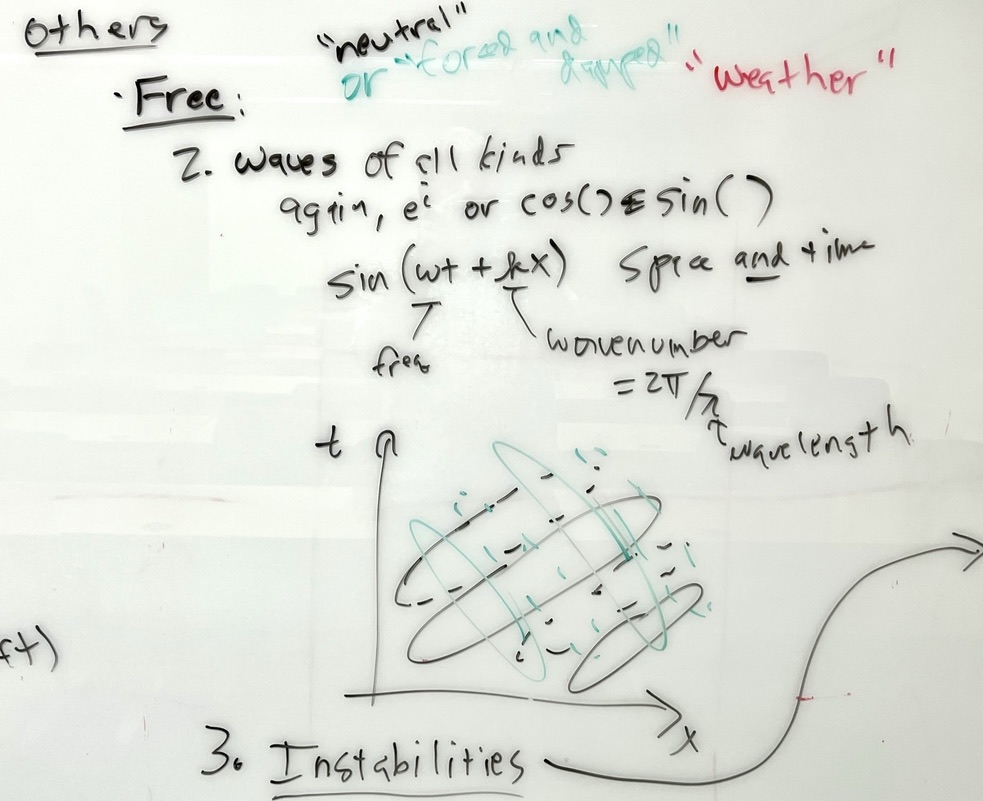 Others
"neutral"
or "forced and damped"
"weather"
· Free:
2. waves of all kinds
again, eⁱ or cos() & sin()
sin (ωt + kx) space and time
freq
wavenumber
= 2π/λ
wavelength
t
x
3. Instabilities